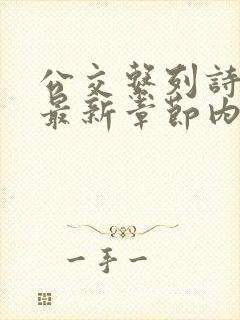 公交繫列詩
最新章節内
一手一